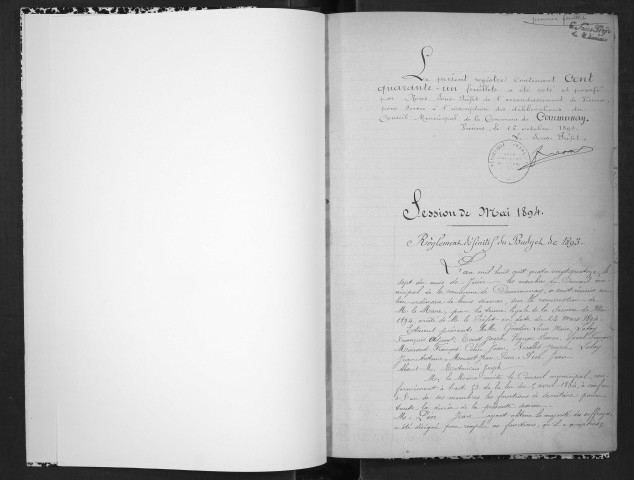 premier feuillet
Le Sous-Préfet
Le présent registre contenant Cent
quarante-un feuillets a été coté et paraphé
par Nous, Sous-Préfet de l'arrondissement de Vienne,
pour servir à l'inscription des délibérations du
Conseil Municipal de la Commune de Communay.
Vienne, le 15 octobre 189
Le Sous-Préfet,
Session de Mai 1894.
Règlement définitif du Budget de 1893.
L'an mil huit cent quatre vingt quatorze, le
sept du mois de Juin les membres du Conseil mu-
nicipal de la commune de Communay, se sont réunis au
lieu ordinaire de leurs séances, sur la convocation de
M. le Maire, pour la tenue légale de la session de Mai
1894, arrêté de M. le Préfet en date du 24 mars 1894.
Etaient présents MM. Louis Marie
François Joseph
François Jean Joseph
Jean Antoine Jean
Absent M. Joseph
M. le Maire invite le Conseil municipal, con-
formément à l'art. 53 de la loi du 5 avril 1884, à
l'un de ses membres les fonctions de secrétaire pour
toute la durée de la présente session.
M. Jean ayant obtenu la majorité des suffrages,
a été désigné pour remplir ces fonctions, qu'il a acceptées.